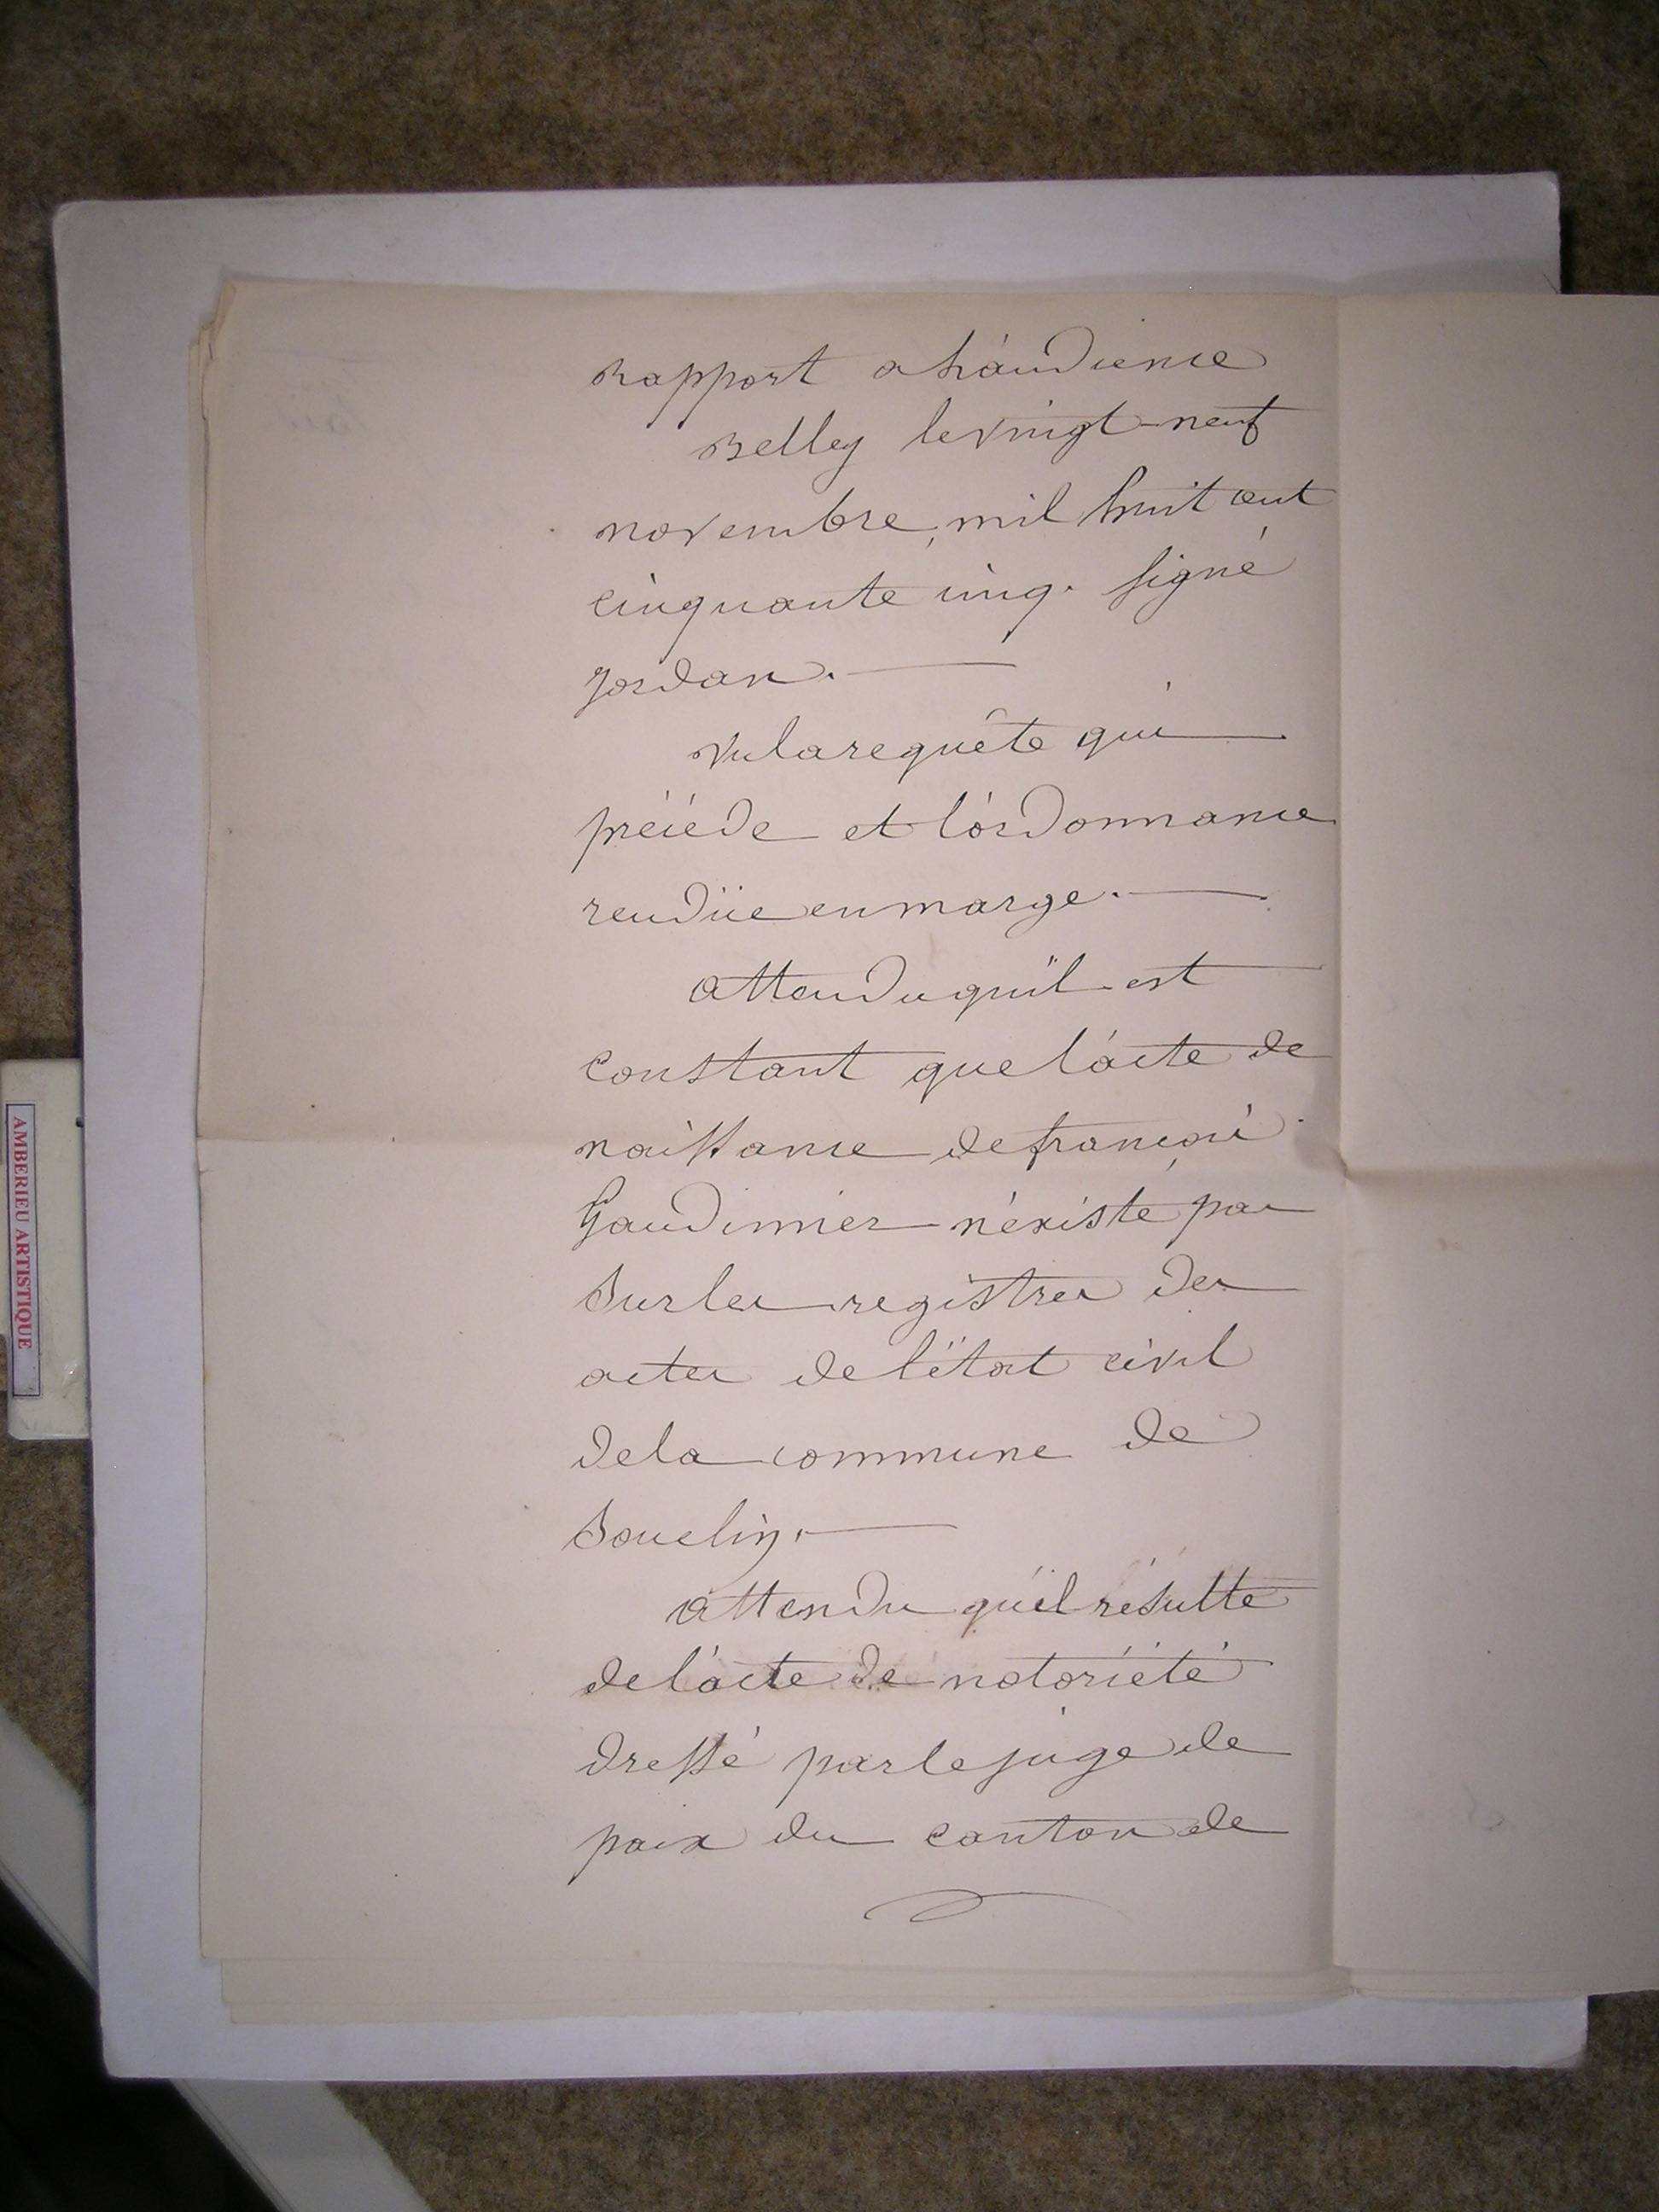 rapport a l'audience
Belley le vingt-neuf
novembre, mil huit cent
cinquante cinq. signé
Jordan.
Vu la requête qui
précéde et l'ordonnance
rendüe en marge.
attendu qu'il est
constant que l'acte de
naissance de françois
Gaudinier n'éxiste pas
sur les registres des
actes de l'état civil
de la commune de
Souclin.
attendu qu'il résulte
de l'acte de notoriété
dressé par le juge de
paix du canton de
AMBERIEU ARTISTIQUE